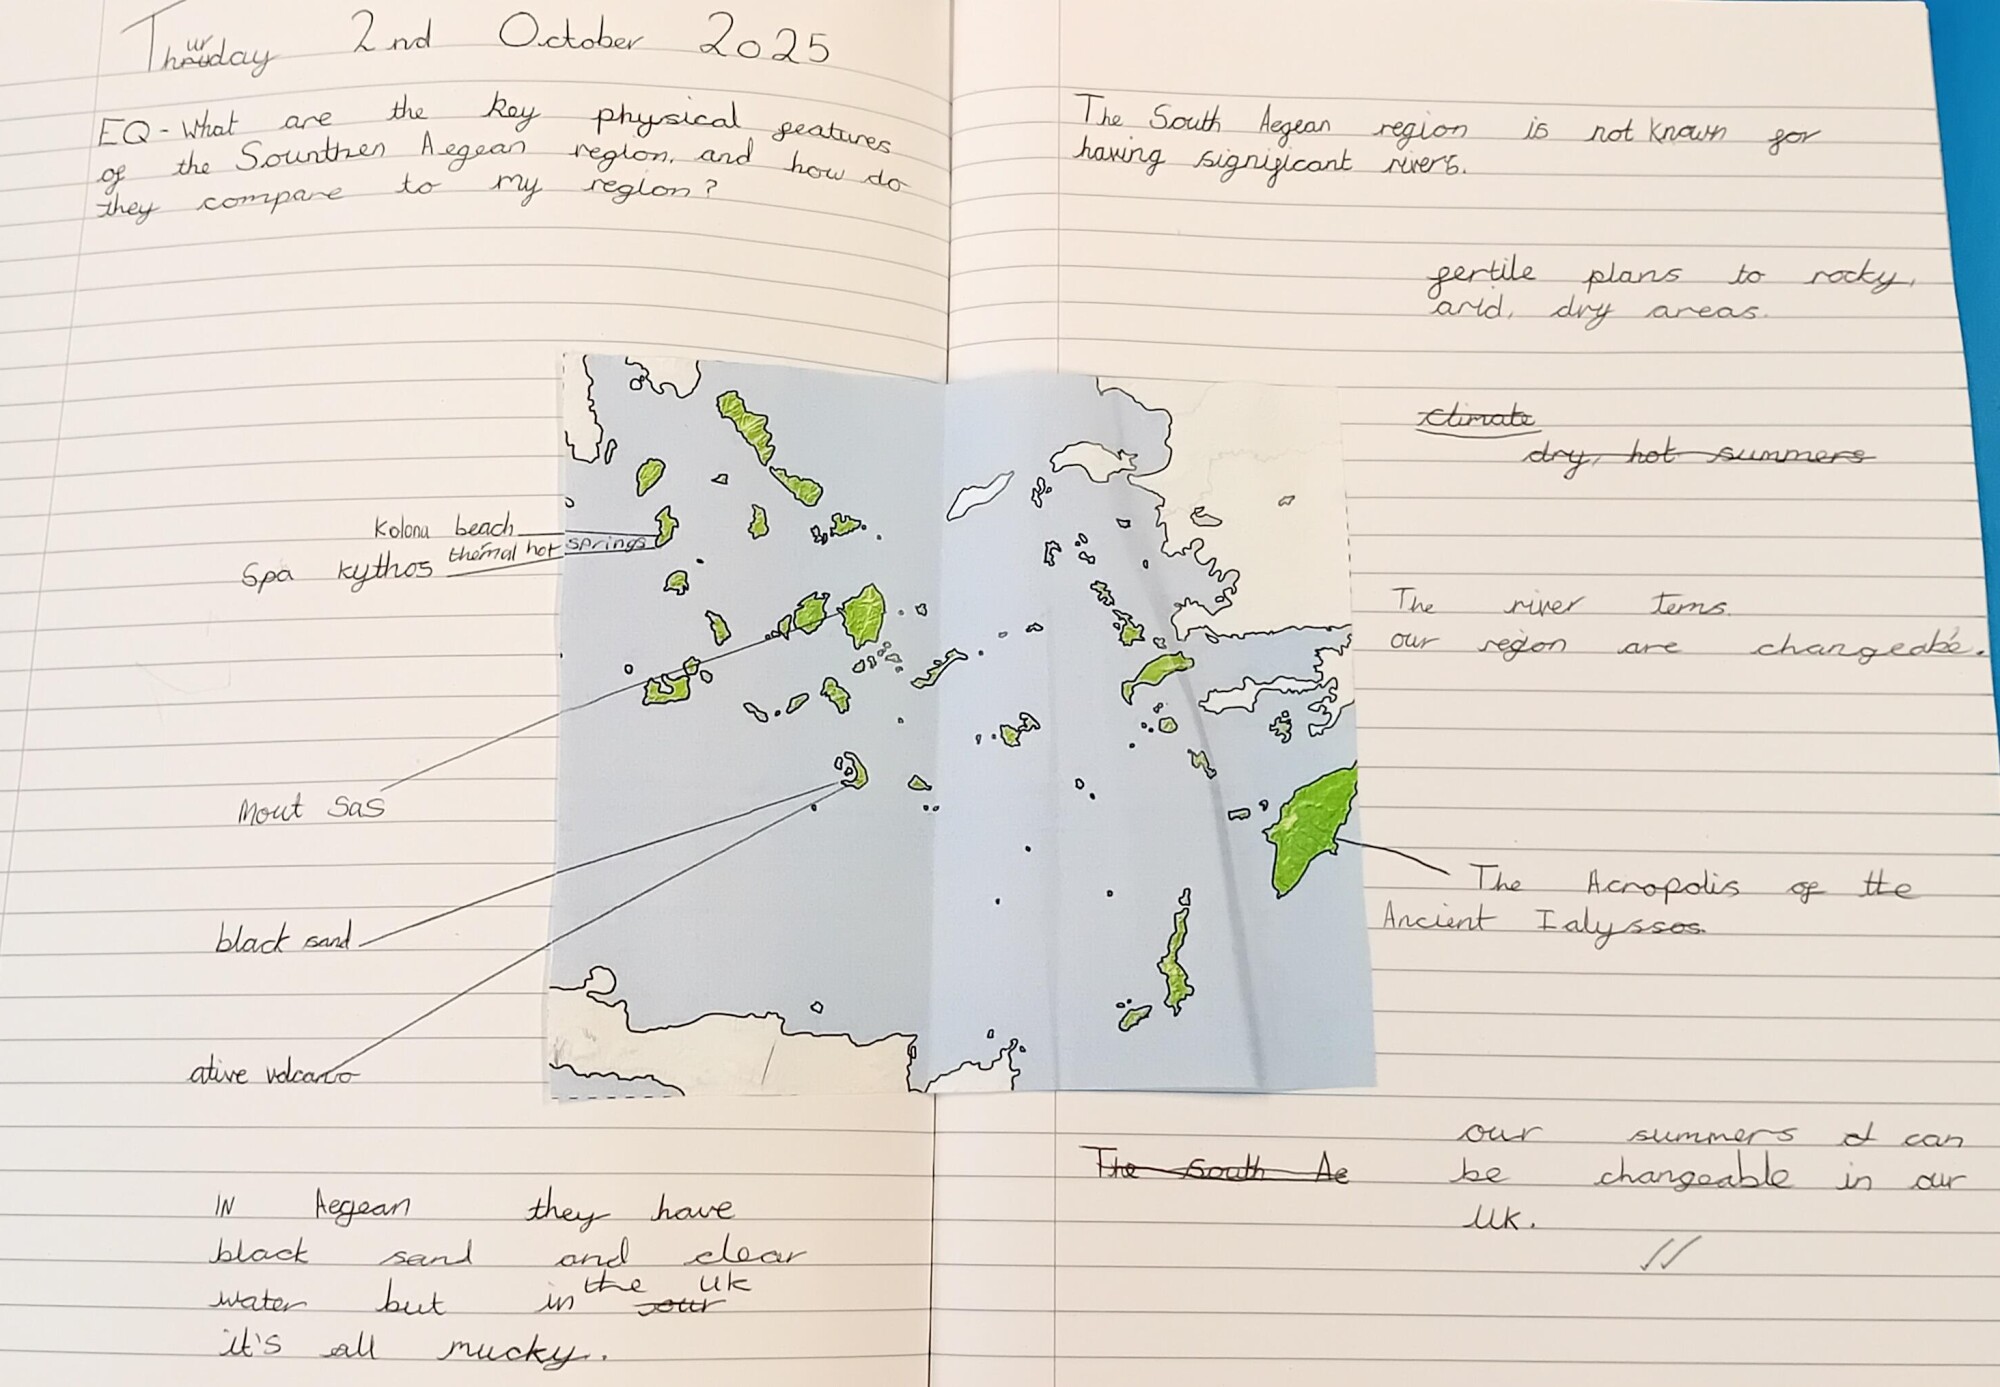 Thursday 2nd October 2025
EQ - What are the key physical features
of the Sounthen Aegean region, and how do
they compare to my region?
Kolona beach
Spa kythos thermal hot springs
Mout Sas
black sand
ative volcano
IN Aegean they have
black sand and clear
water but in the UK
it's all mucky.
The South Aegean region is not known for
having significant rivers.
fertile plans to rocky,
arid, dry areas.
climate
dry, hot summers
The river tems.
our region are changeable.
The Acropolis of the
Ancient Ialyssos.
The South Ae
our summers can
be changeable in our
UK.